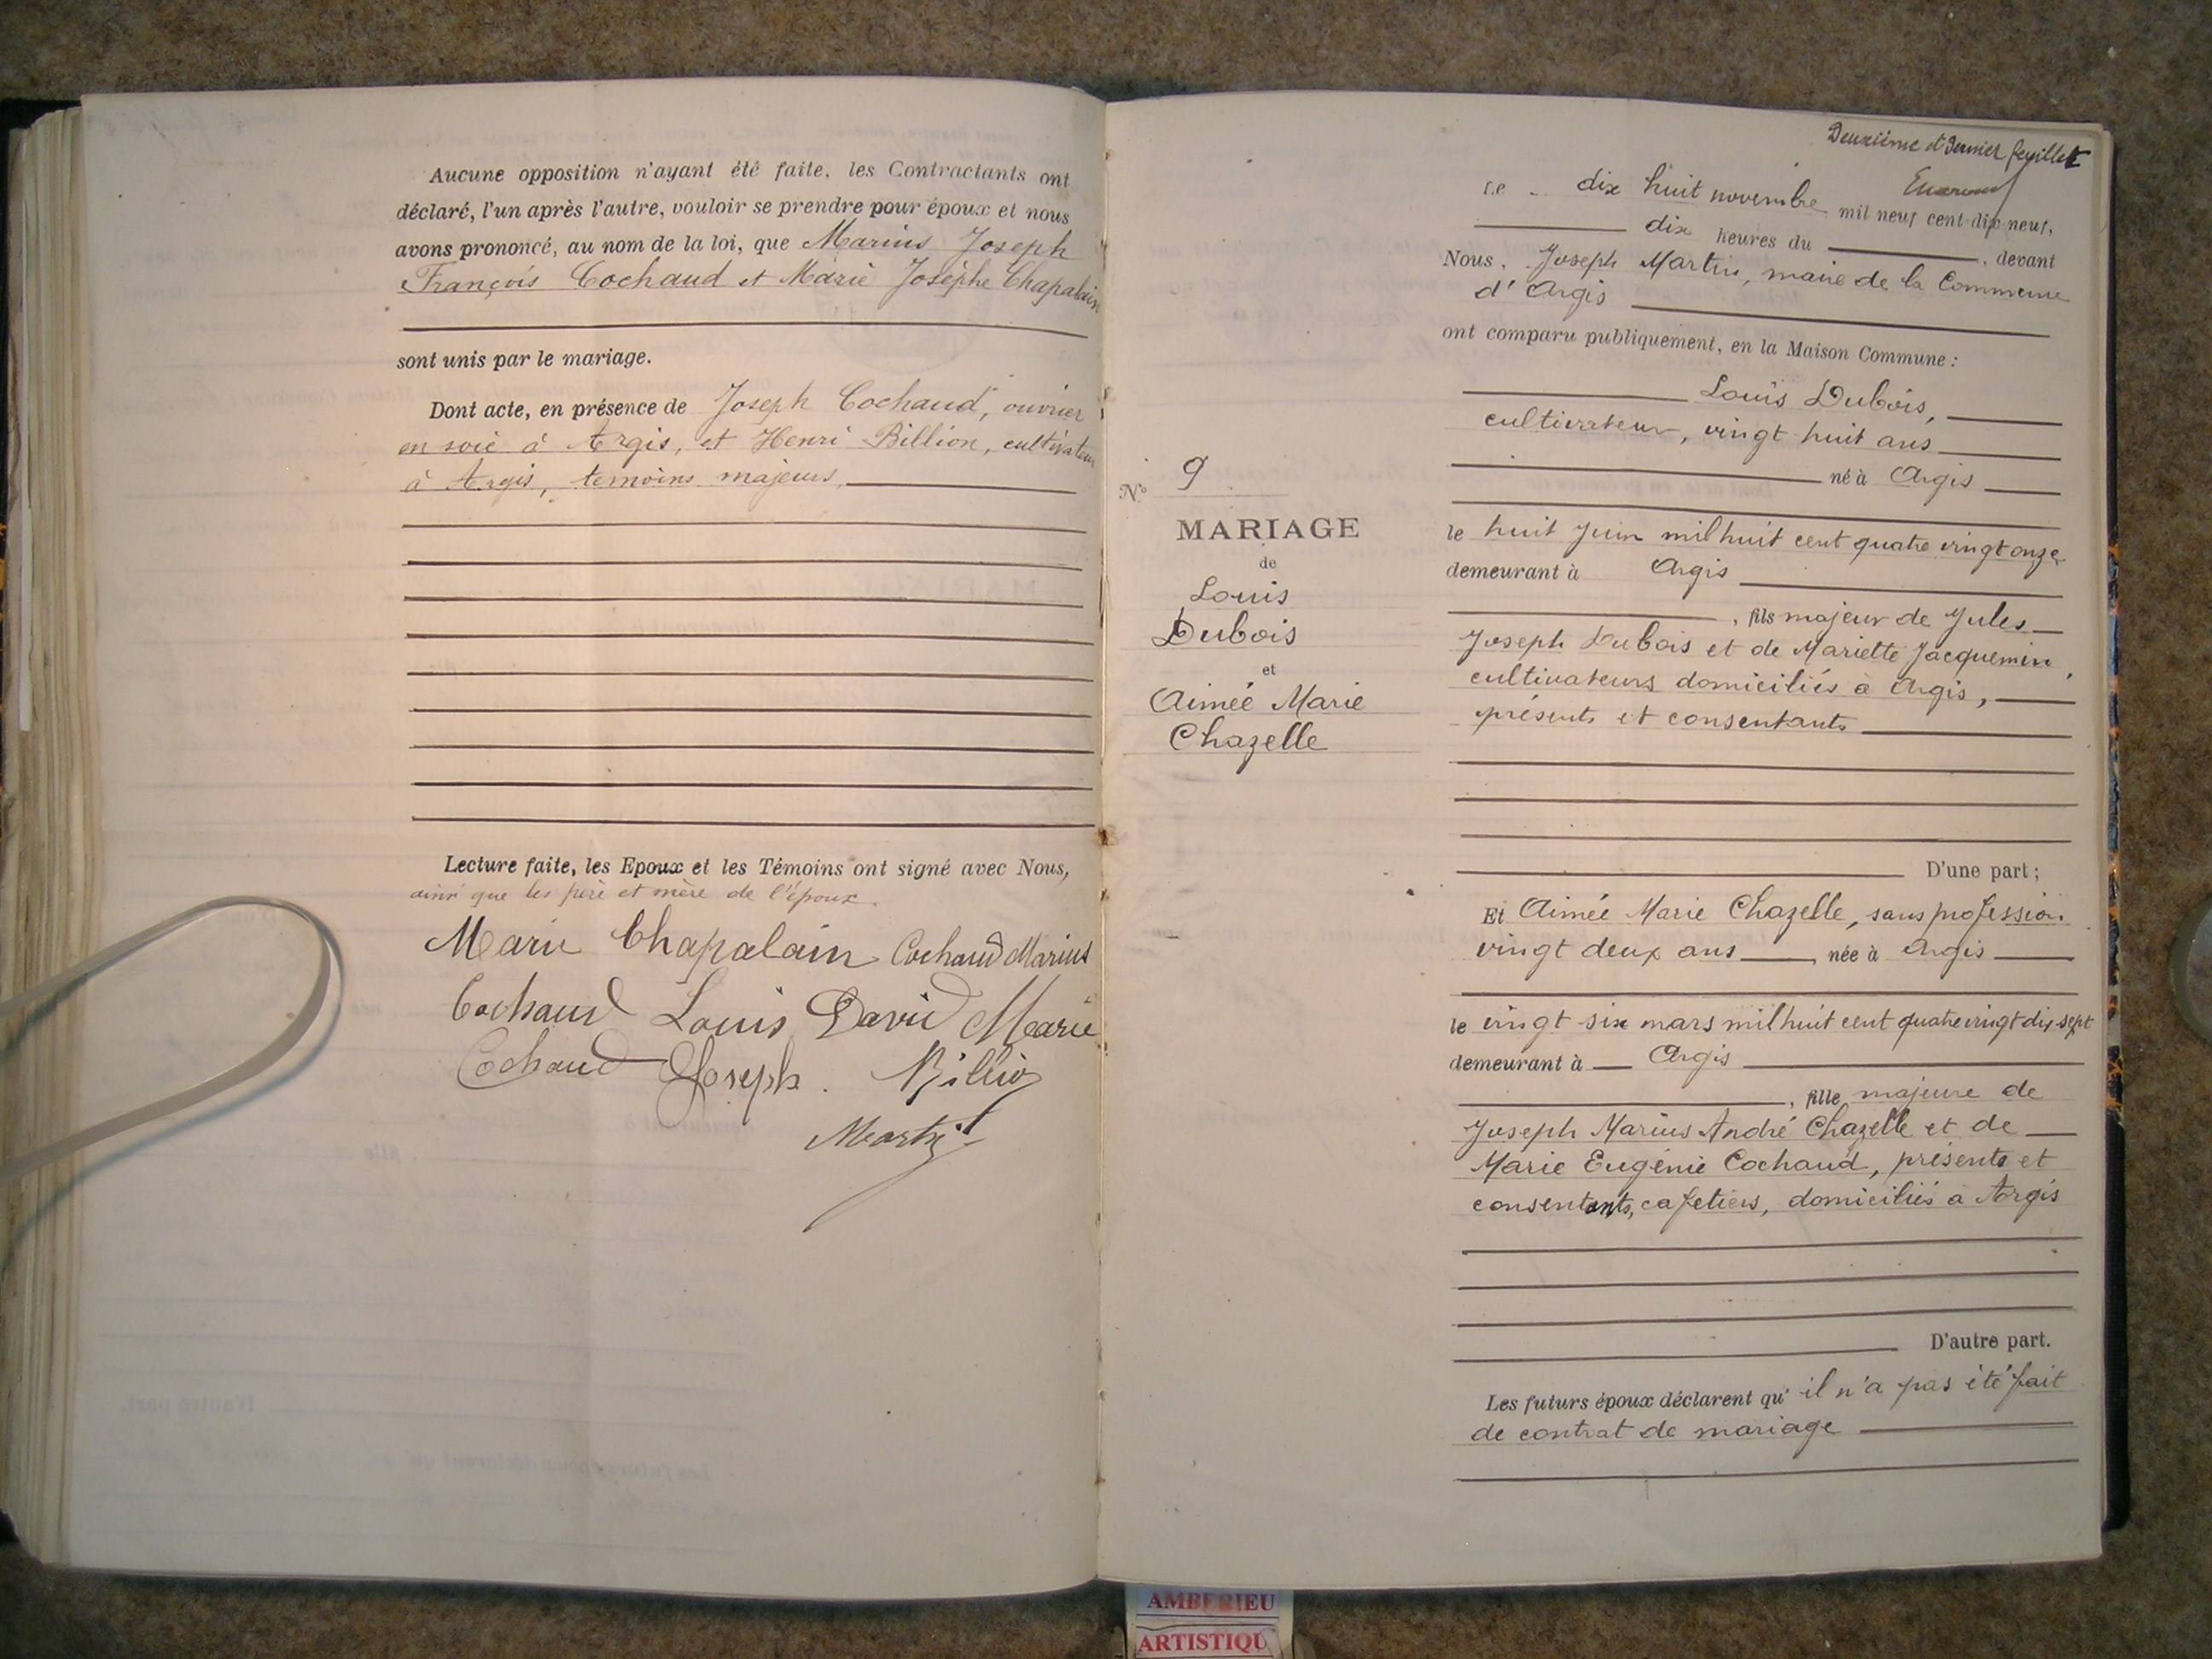 Aucune opposition n'ayant été faite, les Contractants ont
déclaré, l'un après l'autre, vouloir se prendre pour époux et nous
avons prononcé, au nom de la loi, que Marius Joseph
François Cochaud et Marie Josèphe Chapalain
sont unis par le mariage.
Dont acte, en présence de Joseph Cochaud, ouvrier
en soie à Argis, et Henri Billion, cultivateur
à Argis, temoins majeurs,
Lecture faite, les Epoux et les Témoins ont signé avec Nous,
ainsi que les père et mère de l'époux.
Marie Chapalain Cochaud Marius
Cochaud Louis David Marie
Cochaud Joseph. Billion
Martin
Deuxième et dernier feuillet
Le dix huit novembre mil neuf cent dix-neuf,
dix heures du , devant
Nous, Joseph Martin, maire de la Commune
d'Argis
ont comparu publiquement, en la Maison Commune :
Louis Dubois,
cultivateur, vingt huit ans
né à Argis
le huit Juin mil huit cent quatre vingt onze
demeurant à Argis
, fils majeur de Jules
Joseph Dubois et de Mariette Jacquemin,
cultivateurs domiciliés à Argis,
présents et consentants
D'une part ;
Et Aimée Marie Chazelle, sans profession
vingt deux ans , née à Argis
le vingt six mars mil huit cent quatre vingt dix sept
demeurant à Argis
, fille majeure de
Joseph Marius André Chazelle et de
Marie Eugénie Cochaud, présents et
consentants, cafetiers, domiciliés à Argis
D'autre part.
Les futurs époux déclarent qu'il n'a pas été fait
de contrat de mariage
N° 9
MARIAGE
de
Louis
Dubois
et
Aimée Marie
Chazelle
AMBERIEU
ARTISTIQU